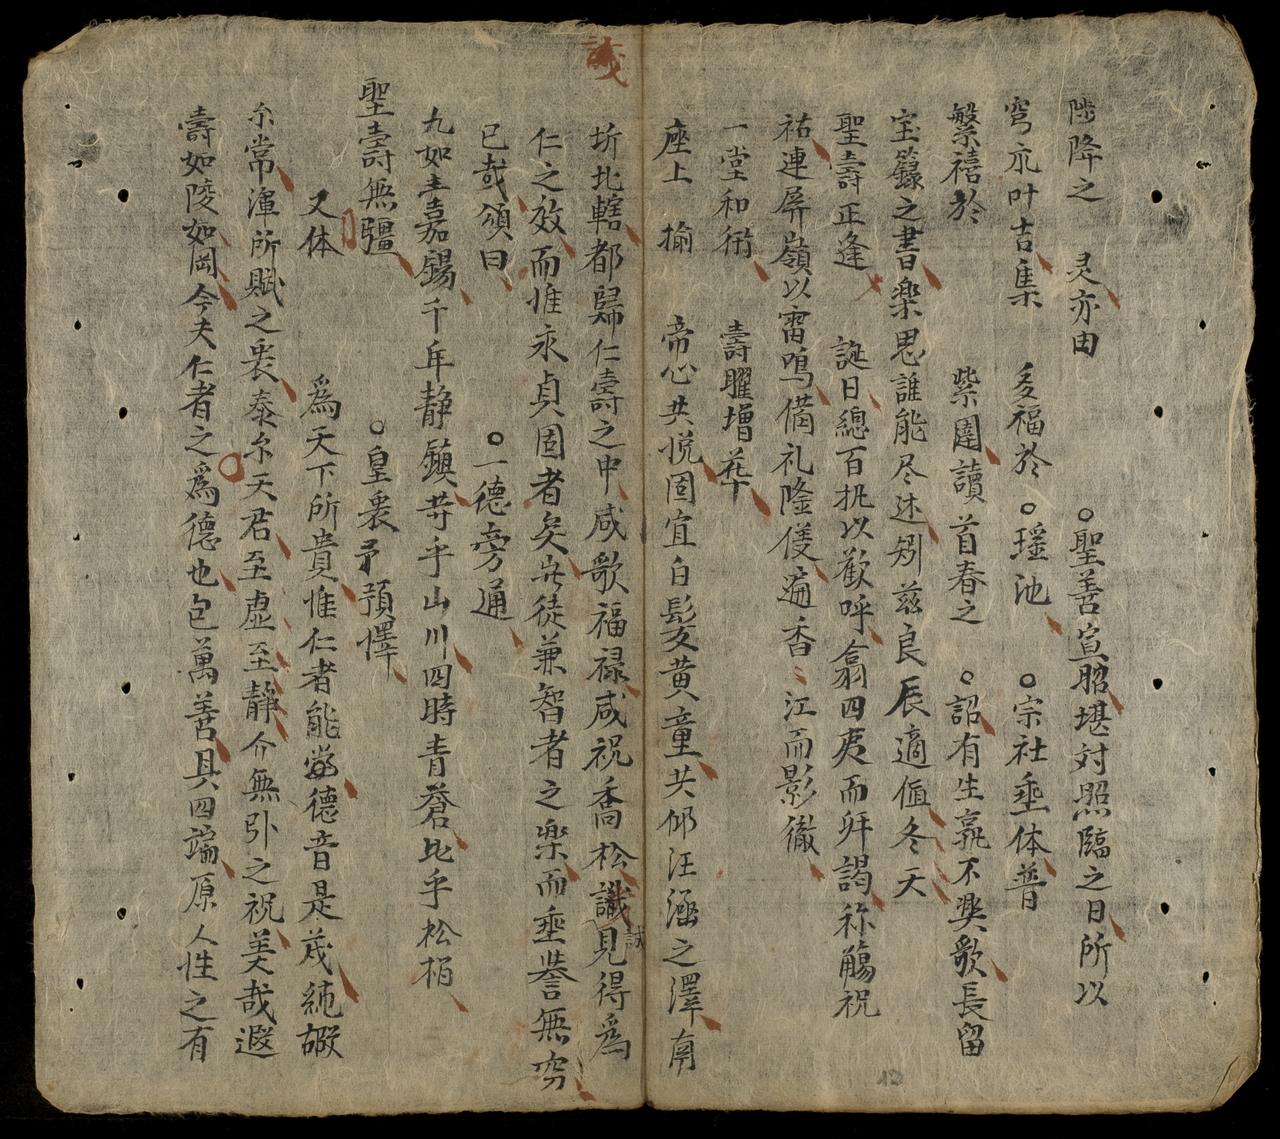 陟降之 灵亦由 聖善宣昭堪対照臨之日所以
穹示叶吉集 多福於 瑶池 宗社垂体普
繁禧於 紫闈讀 首春之 詔有生孰不興歌長留
宝籙之書楽思誰能尽述矧茲良辰適值冬天
聖壽正逢 誕日總百执以歡呼翕四夷而拜謁称觴祝
祐連屏嶺以雷鳴備礼隆僅遍香江而影徹
一堂和術 壽曜增華
座上 揄 帝心共悦固宜白髮黄童共仰汪涵之澤南
圻北轄都歸仁壽之中咸歌福禄咸祝喬松識見得為
誠
仁之效而惟永貞固者矣豈徒兼智者之楽而垂誉無穷
已哉頌曰 一德旁通
九如嘉錫千年静鎮苛乎山川四時青蒼比乎松栢
聖壽無疆 皇衷預懌
又体 為天下所貴惟仁者能當德音是茂純嘏
尓常渾所賦之衷泰尓天君至虚至静介無引之祝美哉遐
壽如陵如岡今夫仁者之為德也包萬善具四端原人性之有